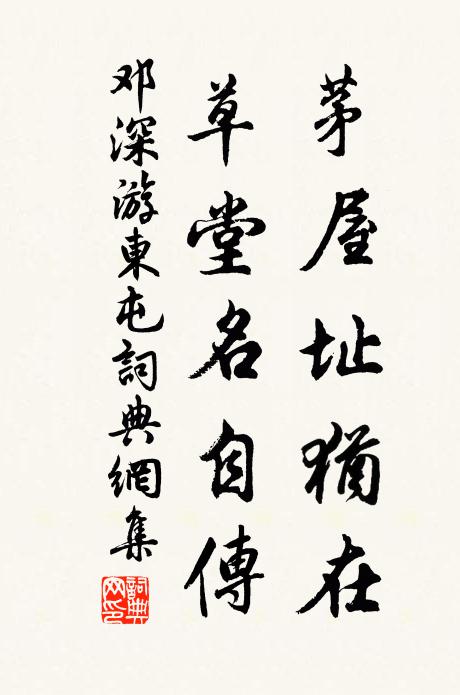 茅屋址猶在
草堂名自傳
邓深游東屯詞典網集
詞典網印